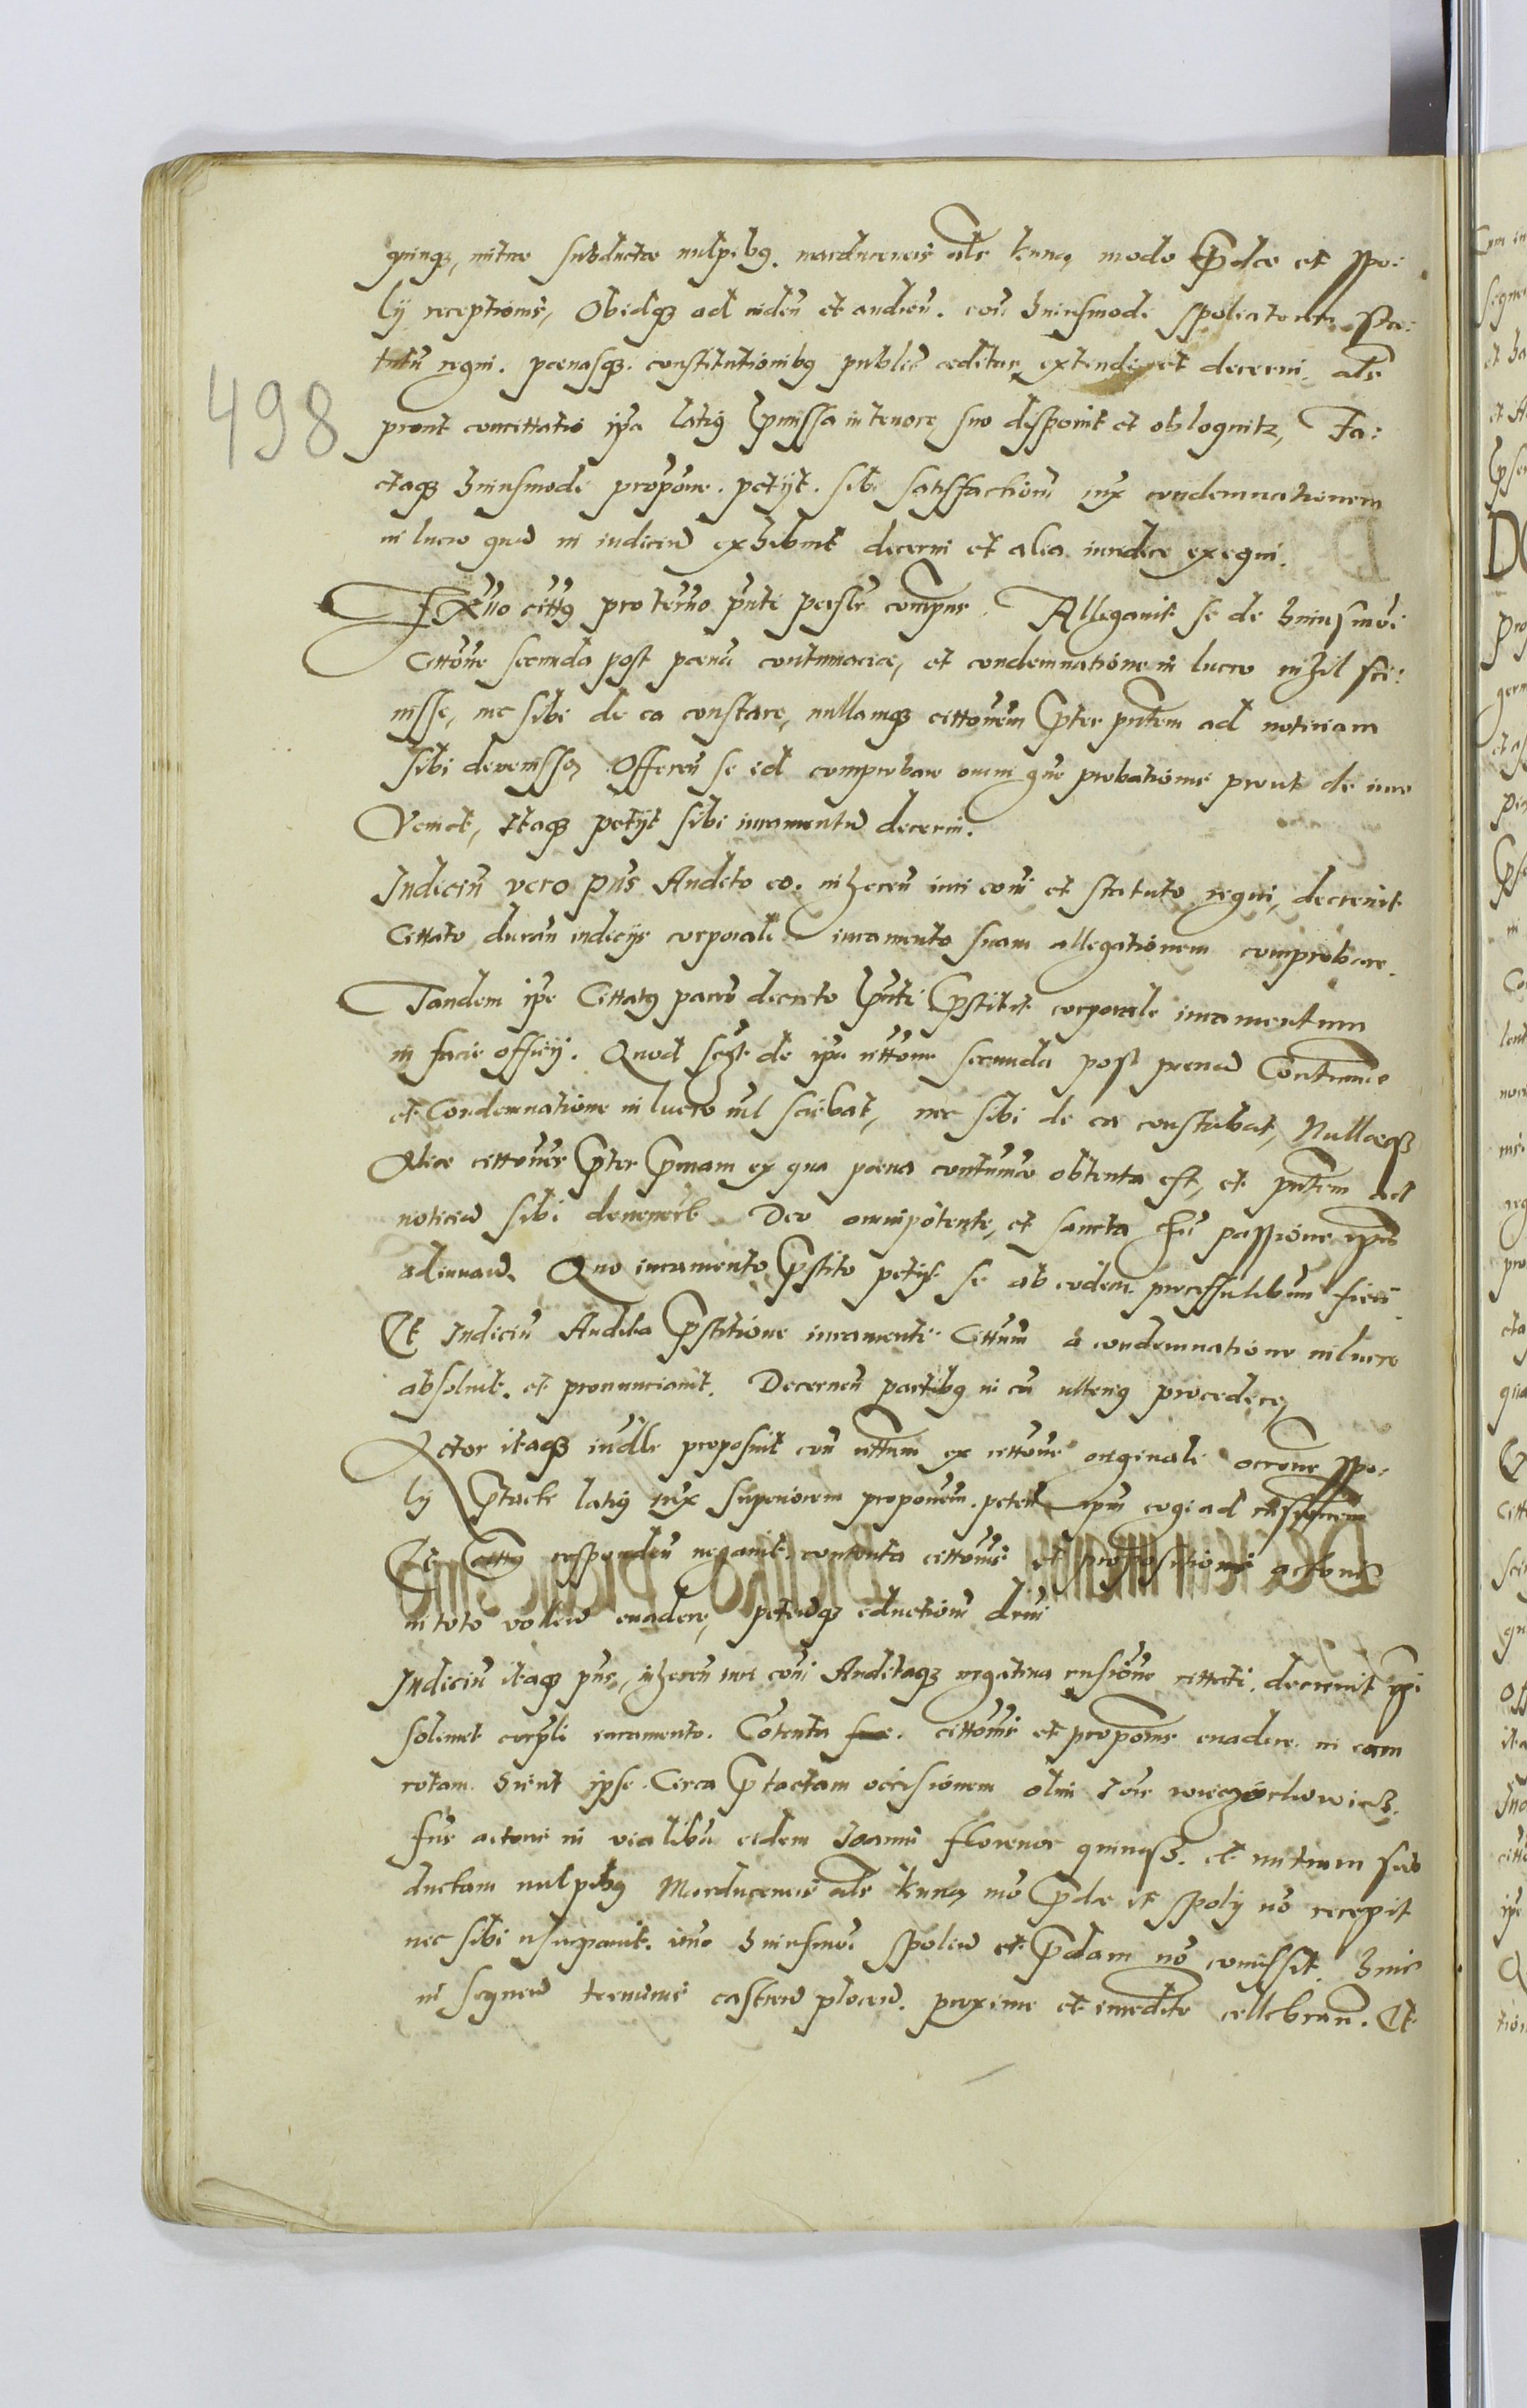 quinq₃, mitrae subductae vulpibus. marducenis als kuną modo p̄dae et spo:
lÿ receptionis, Obidq₃ ad viden̄ et audien̄. con̄ huiusmodi spoliatorem sta:
tutū regni. poenasq₃. constitutionibus publicē aeditas extendi et decerni. als
498
prout concittatio ip̄a latius p̄missa in tenore suo disponit et obloquitr, Fa:
ctaq₃ huiusmodi propōne. petÿt. sibi satisfactionē iux condemnationem
in lucro quā in iudiciū exhibuit decerni et alia iuridice exequi.
Ex
uo cittus pro termo pn̄ti pers̄lr compns. Allegavit se de huiusmōi
Cittōne secunda post poenā contumaciae, et condemnatione in lucro nihil sci:
visse, nec sibi de ea constare, nullamq₃ cittōnem p̄ter pn̄tem ad noticiam
sibi devenisse, Offeren̄ se id comprobare omni gne probationis prout de iure
Veniet, Itaq₃ petÿt sibi iuramentū decerni.
Iudiciū vero pn̄s Audito eo. inheren̄ iuri cōni et statuto regni, decrevit
Cittato duran̄ iudicÿs corporali iuramento suam allegationem comprobare.
Tandem ip̄e Cittatus paren̄ decreto p̄nti p̄stitit corporale iuramentum
in facie officÿ. Quod sc₃t de ip̄a cittōne secunda post poenā Contumae
et Condemnatione in lucro nil sciebat, nec sibi de ea constabat, Nullaeq₃
Aliae cittōnes p̄ter p̄mam ex qua poena contumae obtenta est, et pn̄tem ad
noticiā sibi devenerūt Deo omnipotente, et sancta Chr̄i passione ip̄m
adiuvan̄. Quo iuramento p̄stito petÿt se ab eodem processu libum fieri.
Et Iudiciū Audita p̄stitione iuramenti Cittum a condemnatione in lucro
absolvit. et pronunciavit. Decernen̄ partibus in cā ulterius procedere,
Actor itaq₃ iudlr proposuit con̄ cittum ex cittōne originali accōne spo:
lÿ p̄tacti latius iux superiorem propōnem. peten̄ ipm cogi ad
Et Cittus responden̄ negavit contenta cittōnis et propositionis actoris
in toto vollen̄ evadere, petenq₃ eductionē drni
Iudiciū itaq₃ pn̄s, inheren̄ iuri cōni Auditaq₃ negativa rnsione cittati. decrevit ip̄i
solimet corp̄li iuramento. Cōtenta. cittōnis et propōnis evadere. in eam
rotam. Sicut ipse Circa p̄tactam occisionem olim Iōis
frīs actoris in vialibus eidem Ioanni florenos quinq₃. et mitram sub
ductam vulpibus Marducenis als kuną mō p̄dae et spolÿ nō recepit
nec sibi usurpavit. imo huiusmōi spoliū et p̄dam nō comissit. hinc
in sequen̄ terminis castren̄ plocen̄. proxime et imediate cellebran̄. Et